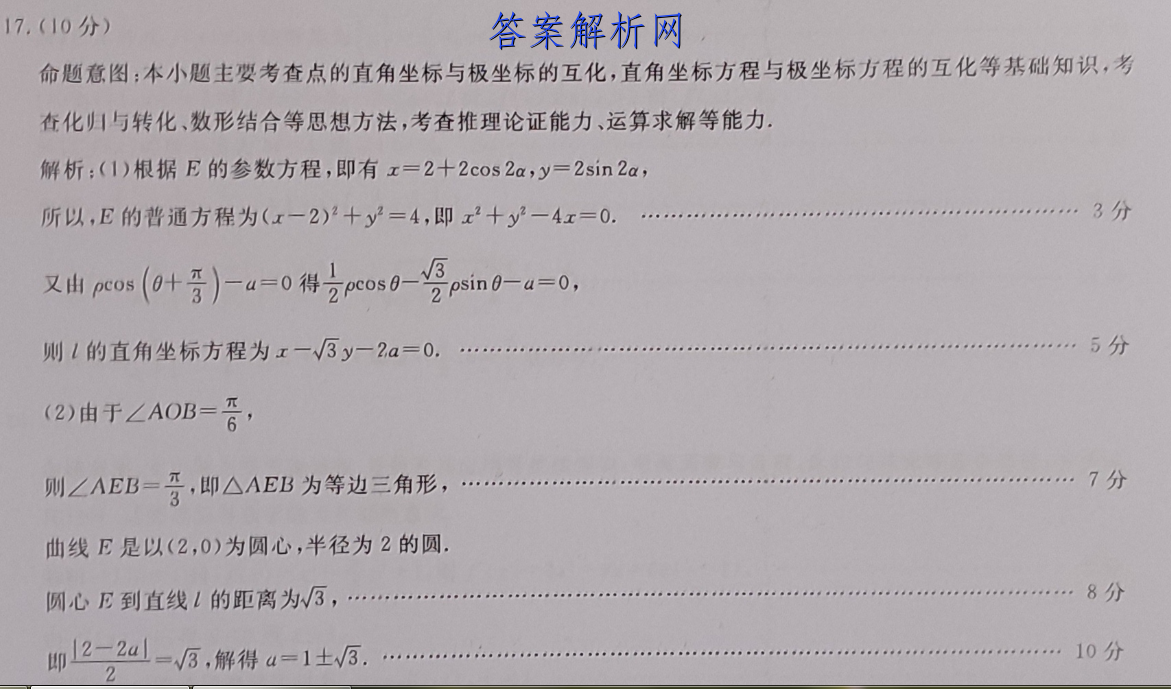 17.(10分)
答案解析网
命题意图:本小题主要考查点的直角坐标与极坐标的互化,直角坐标方程与极坐标方程的互化等基础知识,考
查化归与转化、数形结合等思想方法,考查推理论证能力、运算求解等能力.
解析:(1)根据 E 的参数方程,即有 x=2+2cos 2α,y=2sin 2α,
所以,E 的普通方程为(x-2)²+y²=4,即 x²+y²-4x=0. …… 3分
又由 ρcos(θ+π/3)-a=0 得 1/2 ρcos θ-√3/2 ρsin θ-a=0,
则 l 的直角坐标方程为 x-√3y-2a=0. …… 5分
(2)由于∠AOB=π/6,
则∠AEB=π/3,即△AEB 为等边三角形, …… 7分
曲线 E 是以(2,0)为圆心,半径为 2 的圆.
圆心 E 到直线 l 的距离为√3, …… 8分
即|2-2a|/2=√3,解得 a=1±√3. …… 10分